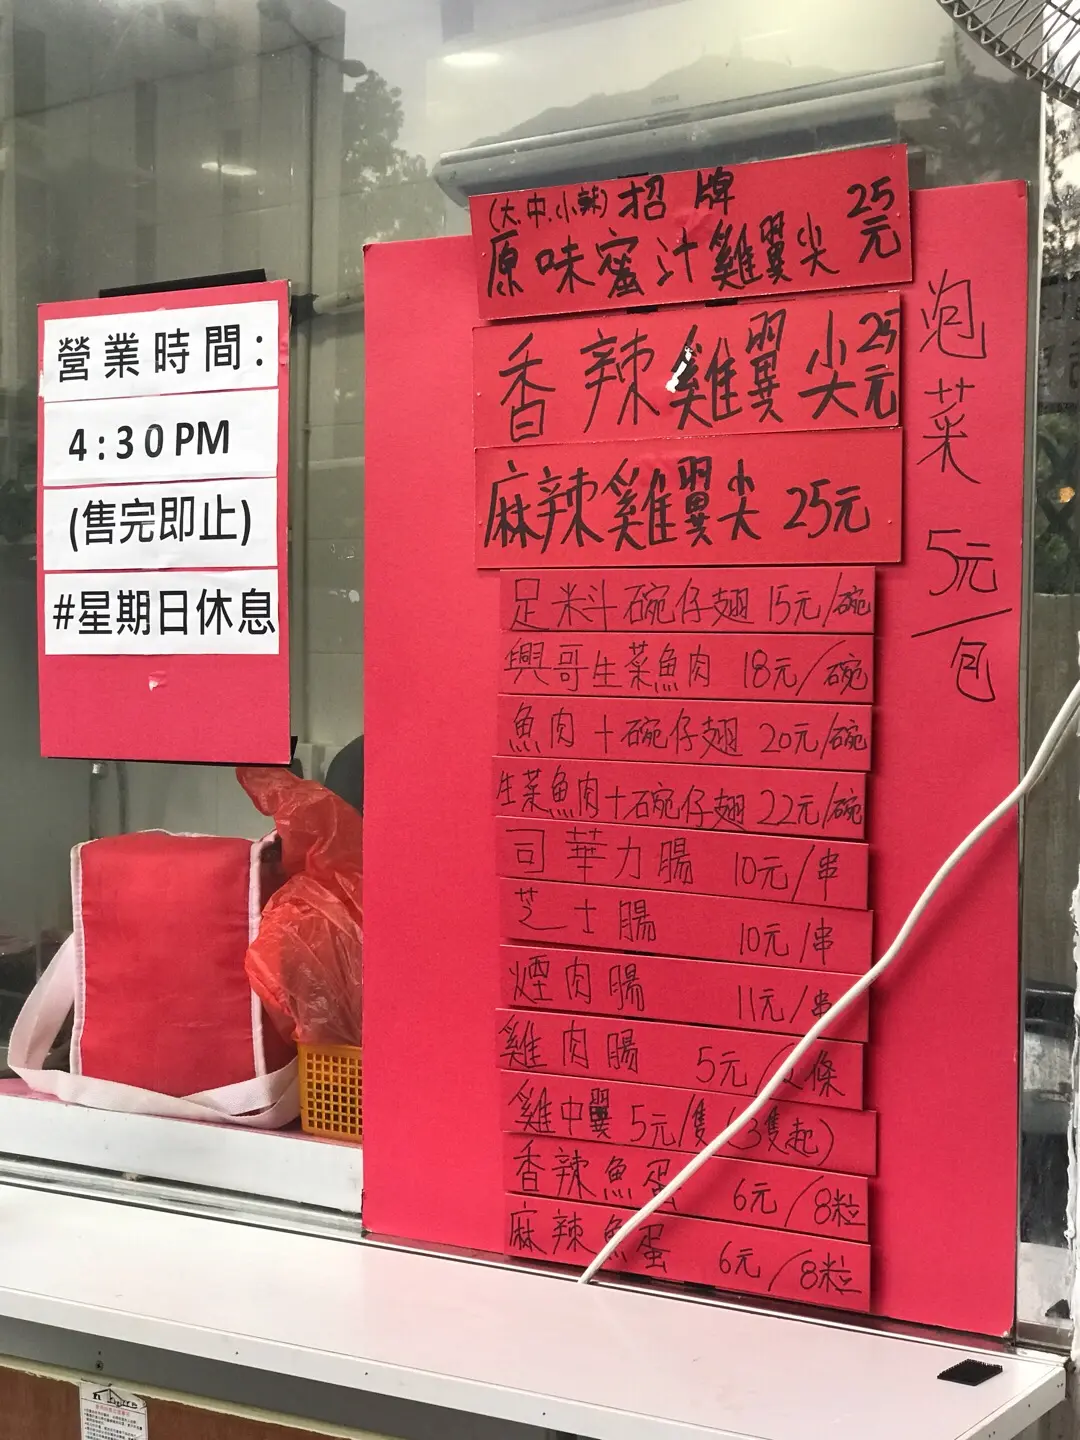 營業時間：
4:30PM
(售完即止)
#星期日休息
(大.中.小辣) 招牌
原味蜜汁雞翼尖 25元
香辣雞翼尖 25元
麻辣雞翼尖 25元
足料碗仔翅 15元/碗
興哥生菜魚肉 18元/碗
魚肉+碗仔翅 20元/碗
生菜魚肉+碗仔翅 22元/碗
司華力腸 10元/串
芝士腸 10元/串
煙肉腸 11元/串
雞肉腸 5元/ 條
雞中翼 5元/隻 (3隻起)
香辣魚蛋 6元/8粒
麻辣魚蛋 6元/8粒
泡菜 5元/包